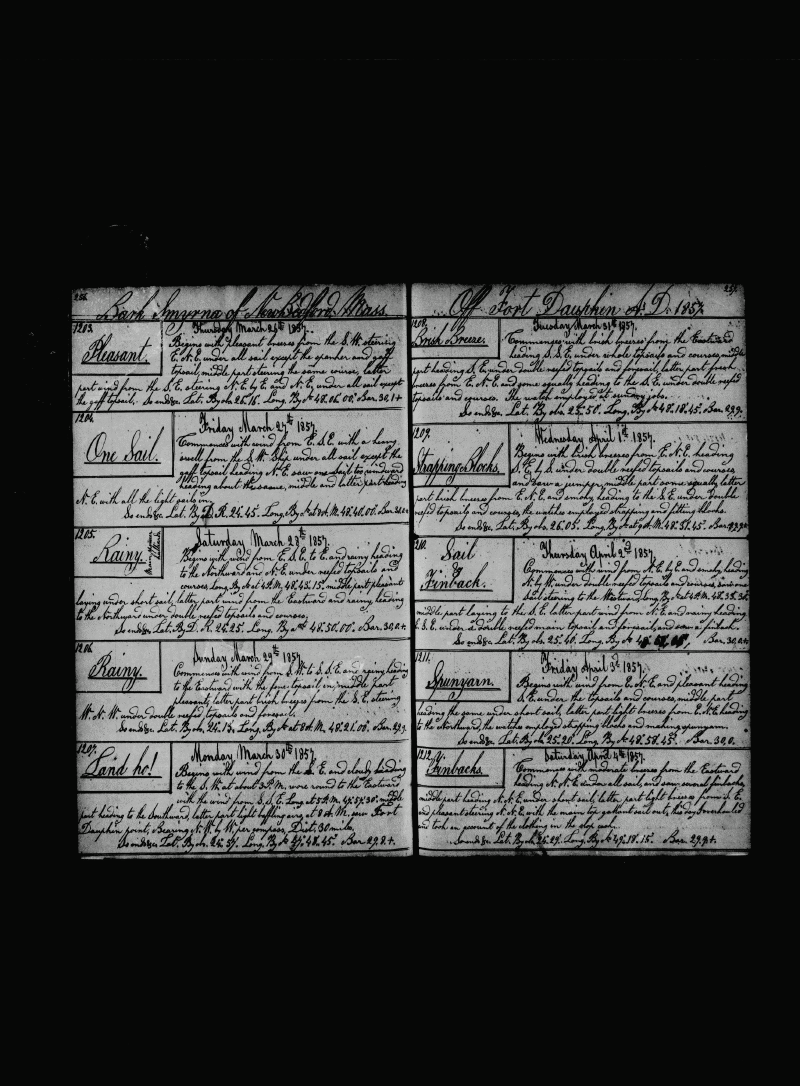 256.
Bark Smyrna of New Bedford Mass.
1203.
Pleasant.
Thursday March 26th 1857.
Begins with pleasant breezes from the S.W. steering
E.N.E. under all sail except the spanker and gaff
topsail, middle part steering the same course, latter
part wind from the S.E. steering N.E. by E. and N.E. under all sail except
the gaff topsail. So ends &c. Lat. By obs. 26.16. Long. By
1204.
One Sail.
Friday March 27th 1857.
Commences with wind from E.S.E. with a heavy
swell from the S.W. Ship under all sail except the
gaff topsail heading N.E. saw one sail to windward
heading about the same, middle and latter part heading
N.E. with all the light sails on.
So ends &c. Lat. By D.R. 24.45. Long. By
1205.
Rainy.
Saturday March 28th 1857.
Begins with wind from E.S.E. to E. and rainy heading
to the Northward and N.E. under reefed topsails and
courses, Long. By 48.43.15. middle part pleasant
laying under short sail, latter part wind from the Eastward and rainy heading
to the Northward under double reefed topsails and courses.
So ends &c. Lat. By D.R. 24.25. Long. By 48.50.00. Bar. 30,0+
1206.
Rainy.
Sunday March 29th 1857.
Commences with wind from S.W. to S.S.E. and rainy heading
to the Eastward with the fore topsail in, middle part
pleasant, latter part brisk breezes from the S.E. steering
W.N.W. under double reefed topsails and foresail.
So ends &c. Lat. By obs. 24.13. Long. By at 8 A.M. 48.21.00. Bar. 29,9
1207.
Land ho!
Monday March 30th 1857.
Begins with wind from the S.E. and cloudy heading
to the S.W. at about 3 P.M. wore round to the Eastward
with the wind from S.S.E. Long at 5 P.M. 47.57.30. middle
part heading to the Southward, latter part light baffling airs, at 8 A.M. saw Fort
Dauphin point, Bearing N.W. by W. per compass, Dist. 30 miles
So ends &c. Lat. By obs. 25.37. Long. By 47.48.45. Bar. 29,8+
257.
Off Fort Dauphin A.D. 1857.
1208.
Brisk Breeze.
Tuesday March 31st 1857.
Commences with brisk breezes from the Eastward
heading S.S.E. under whole topsails and courses, middle
part heading S.E. under double reefed topsails and foresail, latter part fresh
breezes from E.N.E. and some squally heading to the S.E. under double reef'd
topsails and courses. The watch employed at sundry jobs.
So ends &c. Lat. By obs. 25.50. Long. By 48.18.45. Bar. 29,9.
1209.
Strapping Blocks.
Wednesday April 1st 1857.
Begins with brisk breezes from E.N.E. heading
S.E. by S. under double reefed topsails and courses
and saw a jumper, middle part some squally, latter
part brisk breezes from E.N.E. and smoky heading to the S.E. under double
reef'd topsails and courses, the watches employed strapping and fitting blocks.
So ends &c. Lat. By obs. 26.05. Long. By at 9 A.M. 48.51.45. Bar.
1210.
Sail
&
Finback.
Thursday April 2d 1857.
Commences with wind from N.E. by E. and smoky, heading
N. by W. under double reefed topsails and courses, saw one
sail steering to the Westward, Long. By at 4 P.M.
middle part laying to the S.E. latter part wind from N.E. and rainy heading
S.E. under a double reefed main topsail and foresail, and saw a finback.
So ends &c. Lat. By obs. 25.40. Long. By Bar. 30,0+
1211.
Spunyarn.
Friday April 3d 1857.
Begins with wind from E.N.E. and pleasant heading
S.E. under the topsails and courses, middle part
heading the same under short sail, latter part light breezes from E.N.E. heading
to the Northward, the watches employed strapping blocks and making spunyarn.
So ends &c. Lat. By obs. 25.20. Long. By 48.58.45. Bar. 30,0.
1212.
Finbacks.
Saturday April 4th 1857.
Commences with moderate breezes from the Eastward
heading N.N.E. under all sail, and saw several finbacks,
middle part heading N.N.E. under short sail, latter part light breezes from S.E.
and pleasant steering N.N.E. with the main top gallant sail out, this day overhauled
and took an account of the clothing in the slop cask.
So ends &c. Lat. By obs. 24.29. Long. By 49.18.15. Bar. 29,9+.